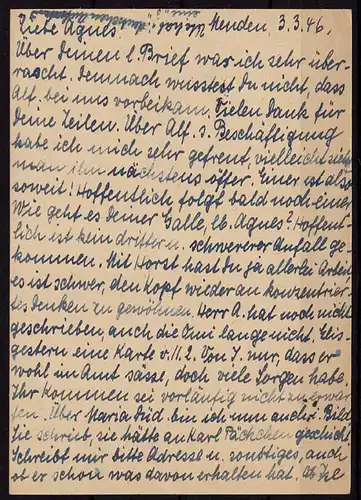 Liebe Agnes! Menden, 3.3.46.
Über Deinen l. Brief war ich sehr über-
rascht. Demnach wusstest Du nicht, dass
Alf. bei uns vorbeikam. Vielen Dank für
Deine Zeilen. Über Alf. s. Beschäftigung
habe ich mich sehr gefreut, vielleicht sieht
man ihn nächstens öfter. Einer ist also
soweit! Hoffentlich folgt bald noch einer.
Wie geht es Deiner Galle, lb. Agnes? Hoffent-
lich ist kein dritter u. schwererer Anfall ge-
kommen. Mit Horst hast Du ja allerlei Arbeit
es ist schwer, den Kopf wieder an konzentrier-
tes Denken zu gewöhnen. Herr A. hat noch nicht
geschrieben, auch die Omi lange nicht.
gestern eine Karte v. 11.2. Von J. nur, dass er
wohl im Amt sässe, doch viele Sorgen habe.
Ihr Kommen sei vorläufig nicht zu erwar-
ten. Über Maria bin ich nun auch i. Bilde
Sie schrieb, sie hätte an Karl Päckchen geschickt.
Schreibt mir bitte Adresse u. sonstiges, auch
ob er schon was davon erhalten hat.